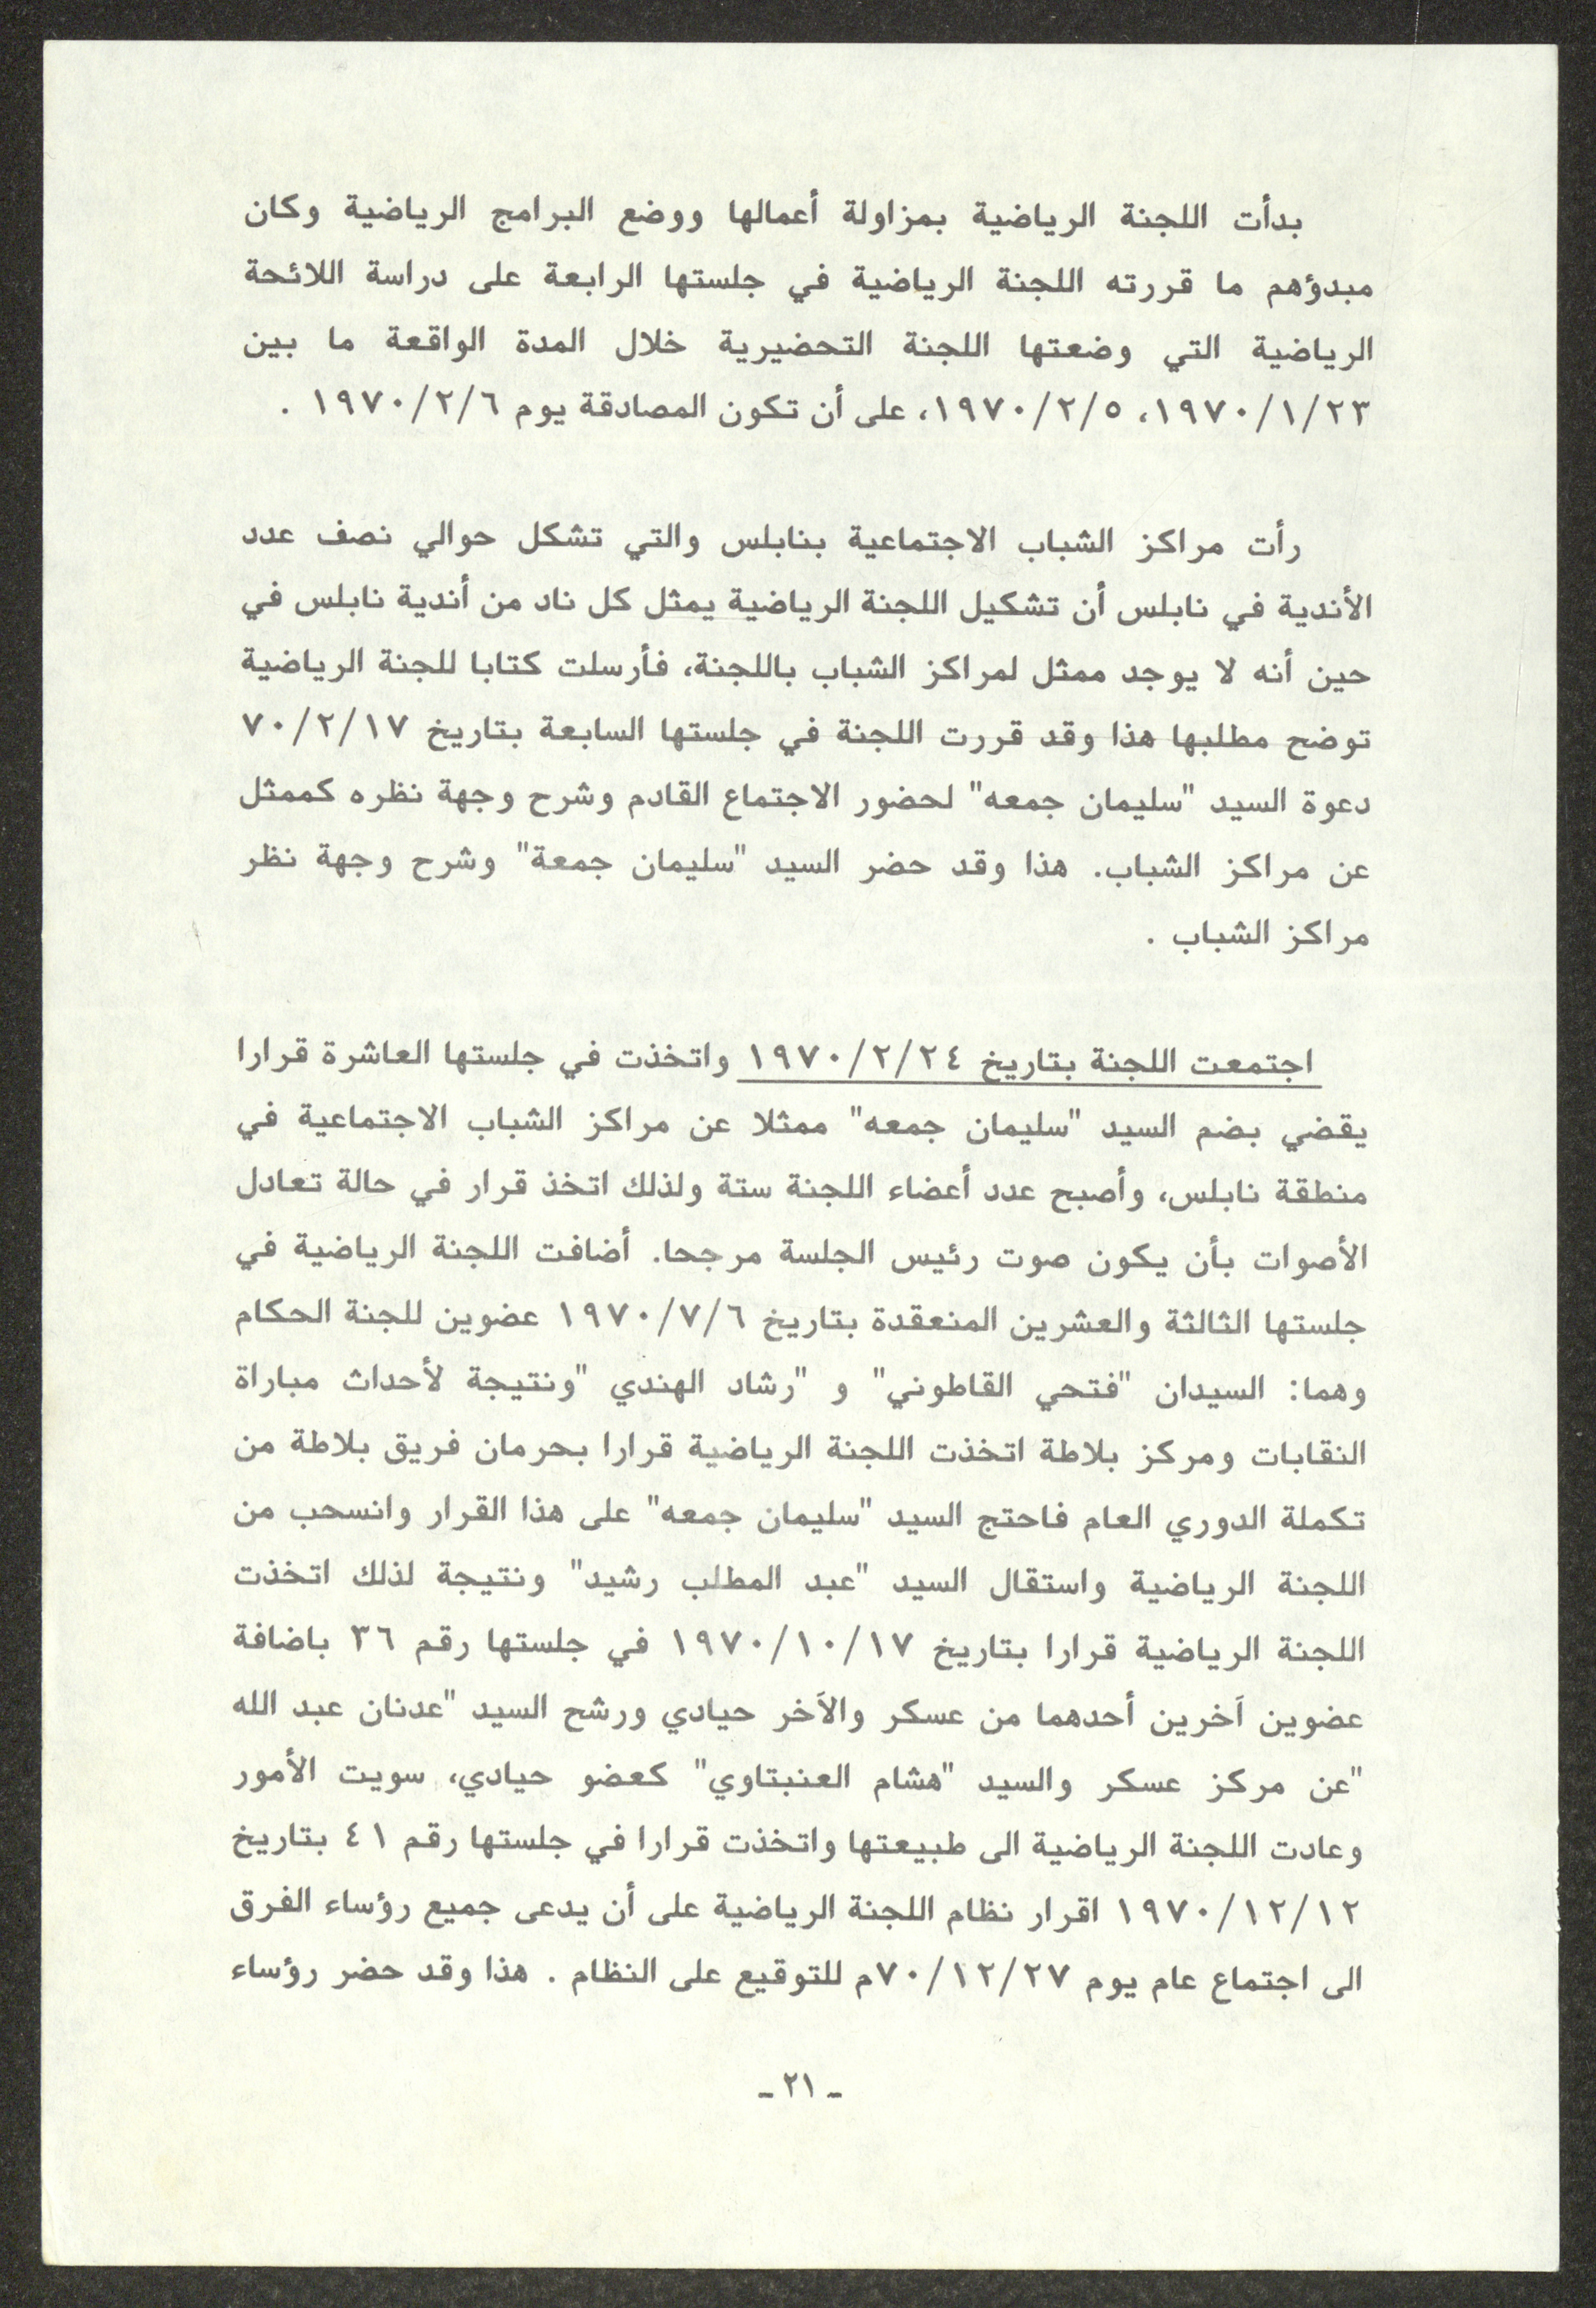 بدأت اللجنة الرياضية بمزاولة أعمالها ووضع البرامج الرياضية وكان
مبدؤهم ما قررته اللجنة الرياضية في جلستها الرابعة على دراسة اللائحة
الرياضية التي وضعتها اللجنة التحضيرية خلال المدة الواقعة ما بين
١٩٧٠/١/٢٣، ١٩٧٠/٢/٥، على أن تكون المصادقة يوم ١٩٧٠/٢/٦ .
رأت مراكز الشباب الاجتماعية بنابلس والتي تشكل حوالي نصف عدد
الأندية في نابلس أن تشكيل اللجنة الرياضية يمثل كل ناد من أندية نابلس في
حين أنه لا يوجد ممثل لمراكز الشباب باللجنة، فأرسلت كتابا للجنة الرياضية
توضح مطلبها هذا وقد قررت اللجنة في جلستها السابعة بتاريخ ٧٠/٢/١٧
دعوة السيد "سليمان جمعه" لحضور الاجتماع القادم وشرح وجهة نظره كممثل
عن مراكز الشباب. هذا وقد حضر السيد "سليمان جمعة" وشرح وجهة نظر
مراكز الشباب .
اجتمعت اللجنة بتاريخ ١٩٧٠/٢/٢٤ واتخذت في جلستها العاشرة قرارا
يقضي بضم السيد "سليمان جمعه" ممثلا عن مراكز الشباب الاجتماعية في
منطقة نابلس، وأصبح عدد أعضاء اللجنة ستة ولذلك اتخذ قرار في حالة تعادل
الأصوات بأن يكون صوت رئيس الجلسة مرجحا. أضافت اللجنة الرياضية في
جلستها الثالثة والعشرين المنعقدة بتاريخ ١٩٧٠/٧/٦ عضوين للجنة الحكام
وهما: السيدان "فتحي القاطوني" و "رشاد الهندي "ونتيجة لأحداث مباراة
النقابات ومركز بلاطة اتخذت اللجنة الرياضية قرارا بحرمان فريق بلاطة من
تكملة الدوري العام فاحتج السيد "سليمان جمعه" على هذا القرار وانسحب من
اللجنة الرياضية واستقال السيد "عبد المطلب رشيد" ونتيجة لذلك اتخذت
اللجنة الرياضية قرارا بتاريخ ١٩٧٠/١٠/١٧ في جلستها رقم ٣٦ باضافة
عضوين آخرين أحدهما من عسكر والآخر حيادي ورشح السيد "عدنان عبد الله
"عن مركز عسكر والسيد "هشام العنبتاوي" كعضو حيادي، سويت الأمور
وعادت اللجنة الرياضية الى طبيعتها واتخذت قرارا في جلستها رقم ٤١ بتاريخ
١٩٧٠/١٢/١٢ اقرار نظام اللجنة الرياضية على أن يدعى جميع رؤساء الفرق
الى اجتماع عام يوم ٧٠/١٢/٢٧م للتوقيع على النظام . هذا وقد حضر رؤساء
- ٢١ -